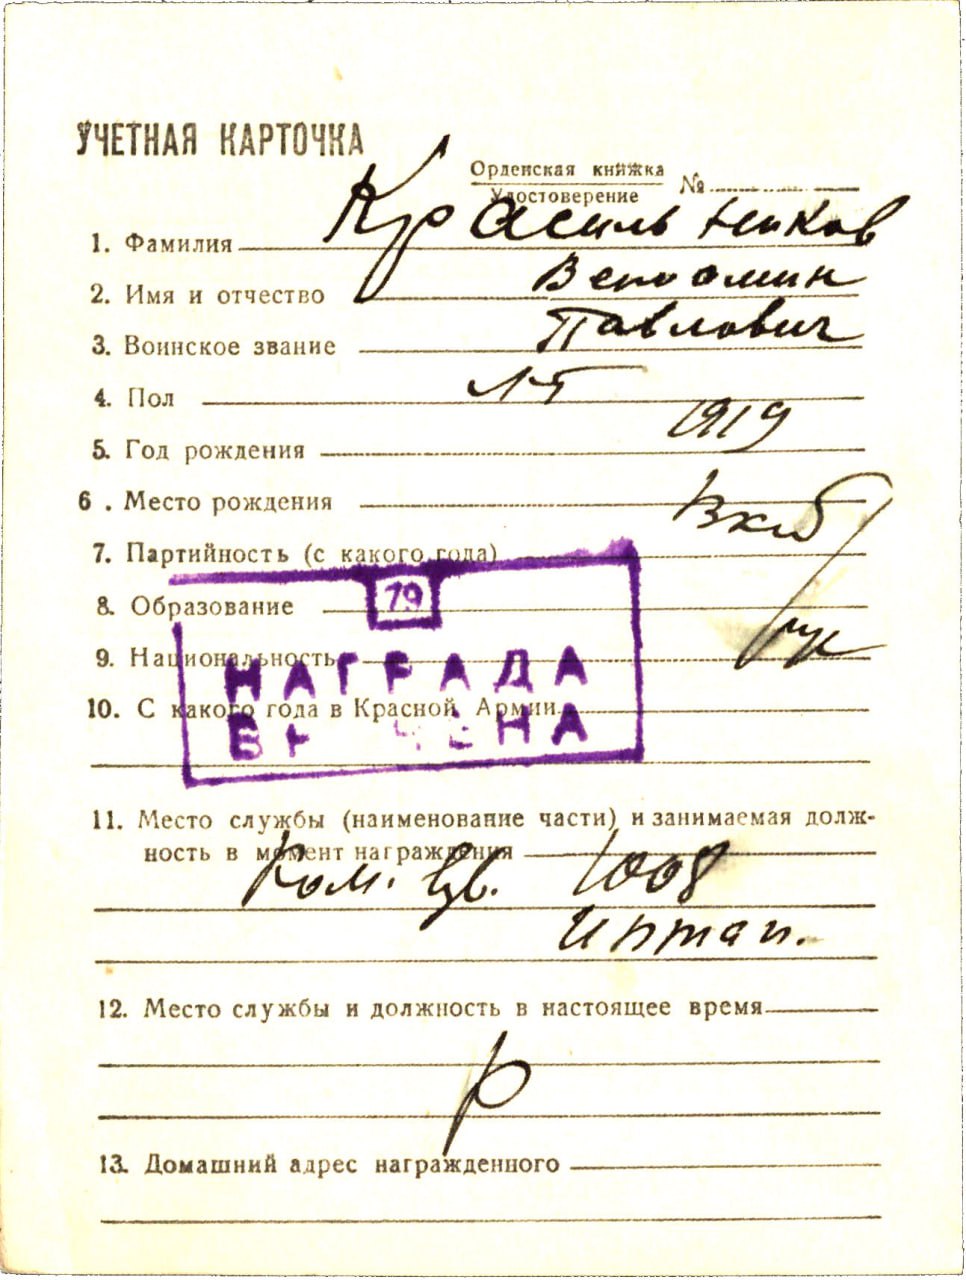 УЧЕТНАЯ КАРТОЧКА
Орденская книжка
Удостоверение
№
1. Фамилия Красильников
2. Имя и отчество Вениамин
Павлович
3. Воинское звание
ЛТ
4. Пол
1919
5. Год рождения
6. Место рождения
Вкпб
7. Партийность (с какого года)
79
8. Образование
рус
9. Национальность
НАГРАДА
10. С какого года в Красной Армии
ВРУЧЕНА
11. Место службы (наименование части) и занимаемая долж-
ность в момент награждения
Ком. взв. 1008
иптап.
12. Место службы и должность в настоящее время
р
13. Домашний адрес награжденного